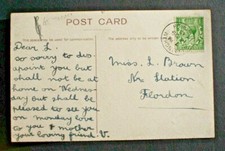 POST CARD
Dear L.
so sorry to dis-
apoint you but
shall not be at
home on Wednes-
day but shall be
pleased to see
you on monday
love to you & mother
your loving friend V.
Miss. L. Brown
Station
Flordon